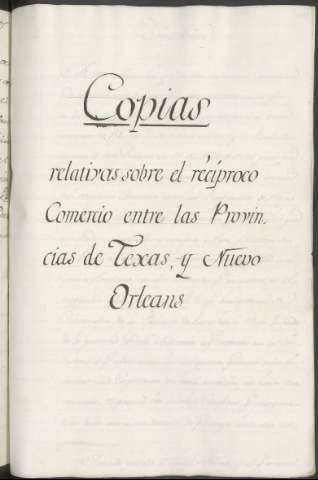 Copias
relativas sobre el recíproco
Comercio entre las Provin.
cias de Texas, y Nuevo
Orleans